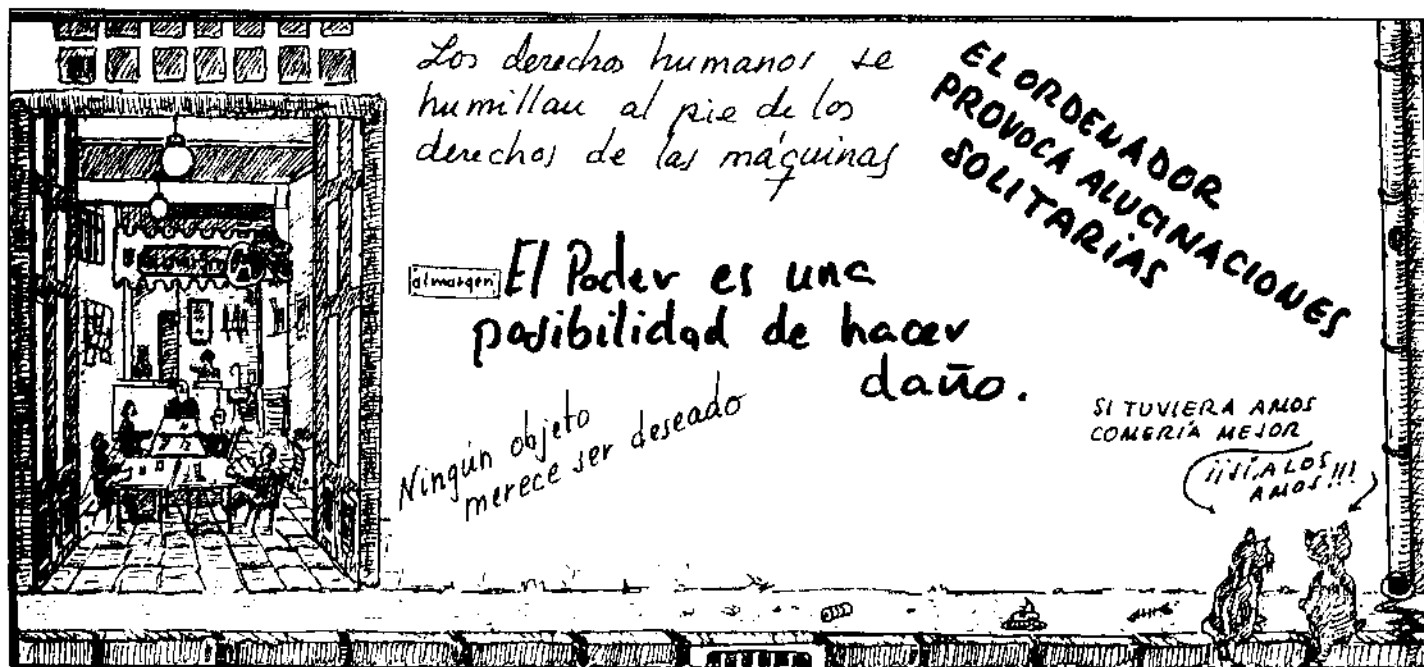 Los derechos humanos se
humillan al pie de los
derechos de las máquinas
EL ORDENADOR
PROVOCA ALUCINACIONES
SOLITARIAS
al margen
El Poder es una
posibilidad de hacer
daño.
Ningún objeto
merece ser deseado
SI TUVIERA AMOS
COMERÍA MEJOR
¡¡¡SÍ, A LOS
AMOS!!!